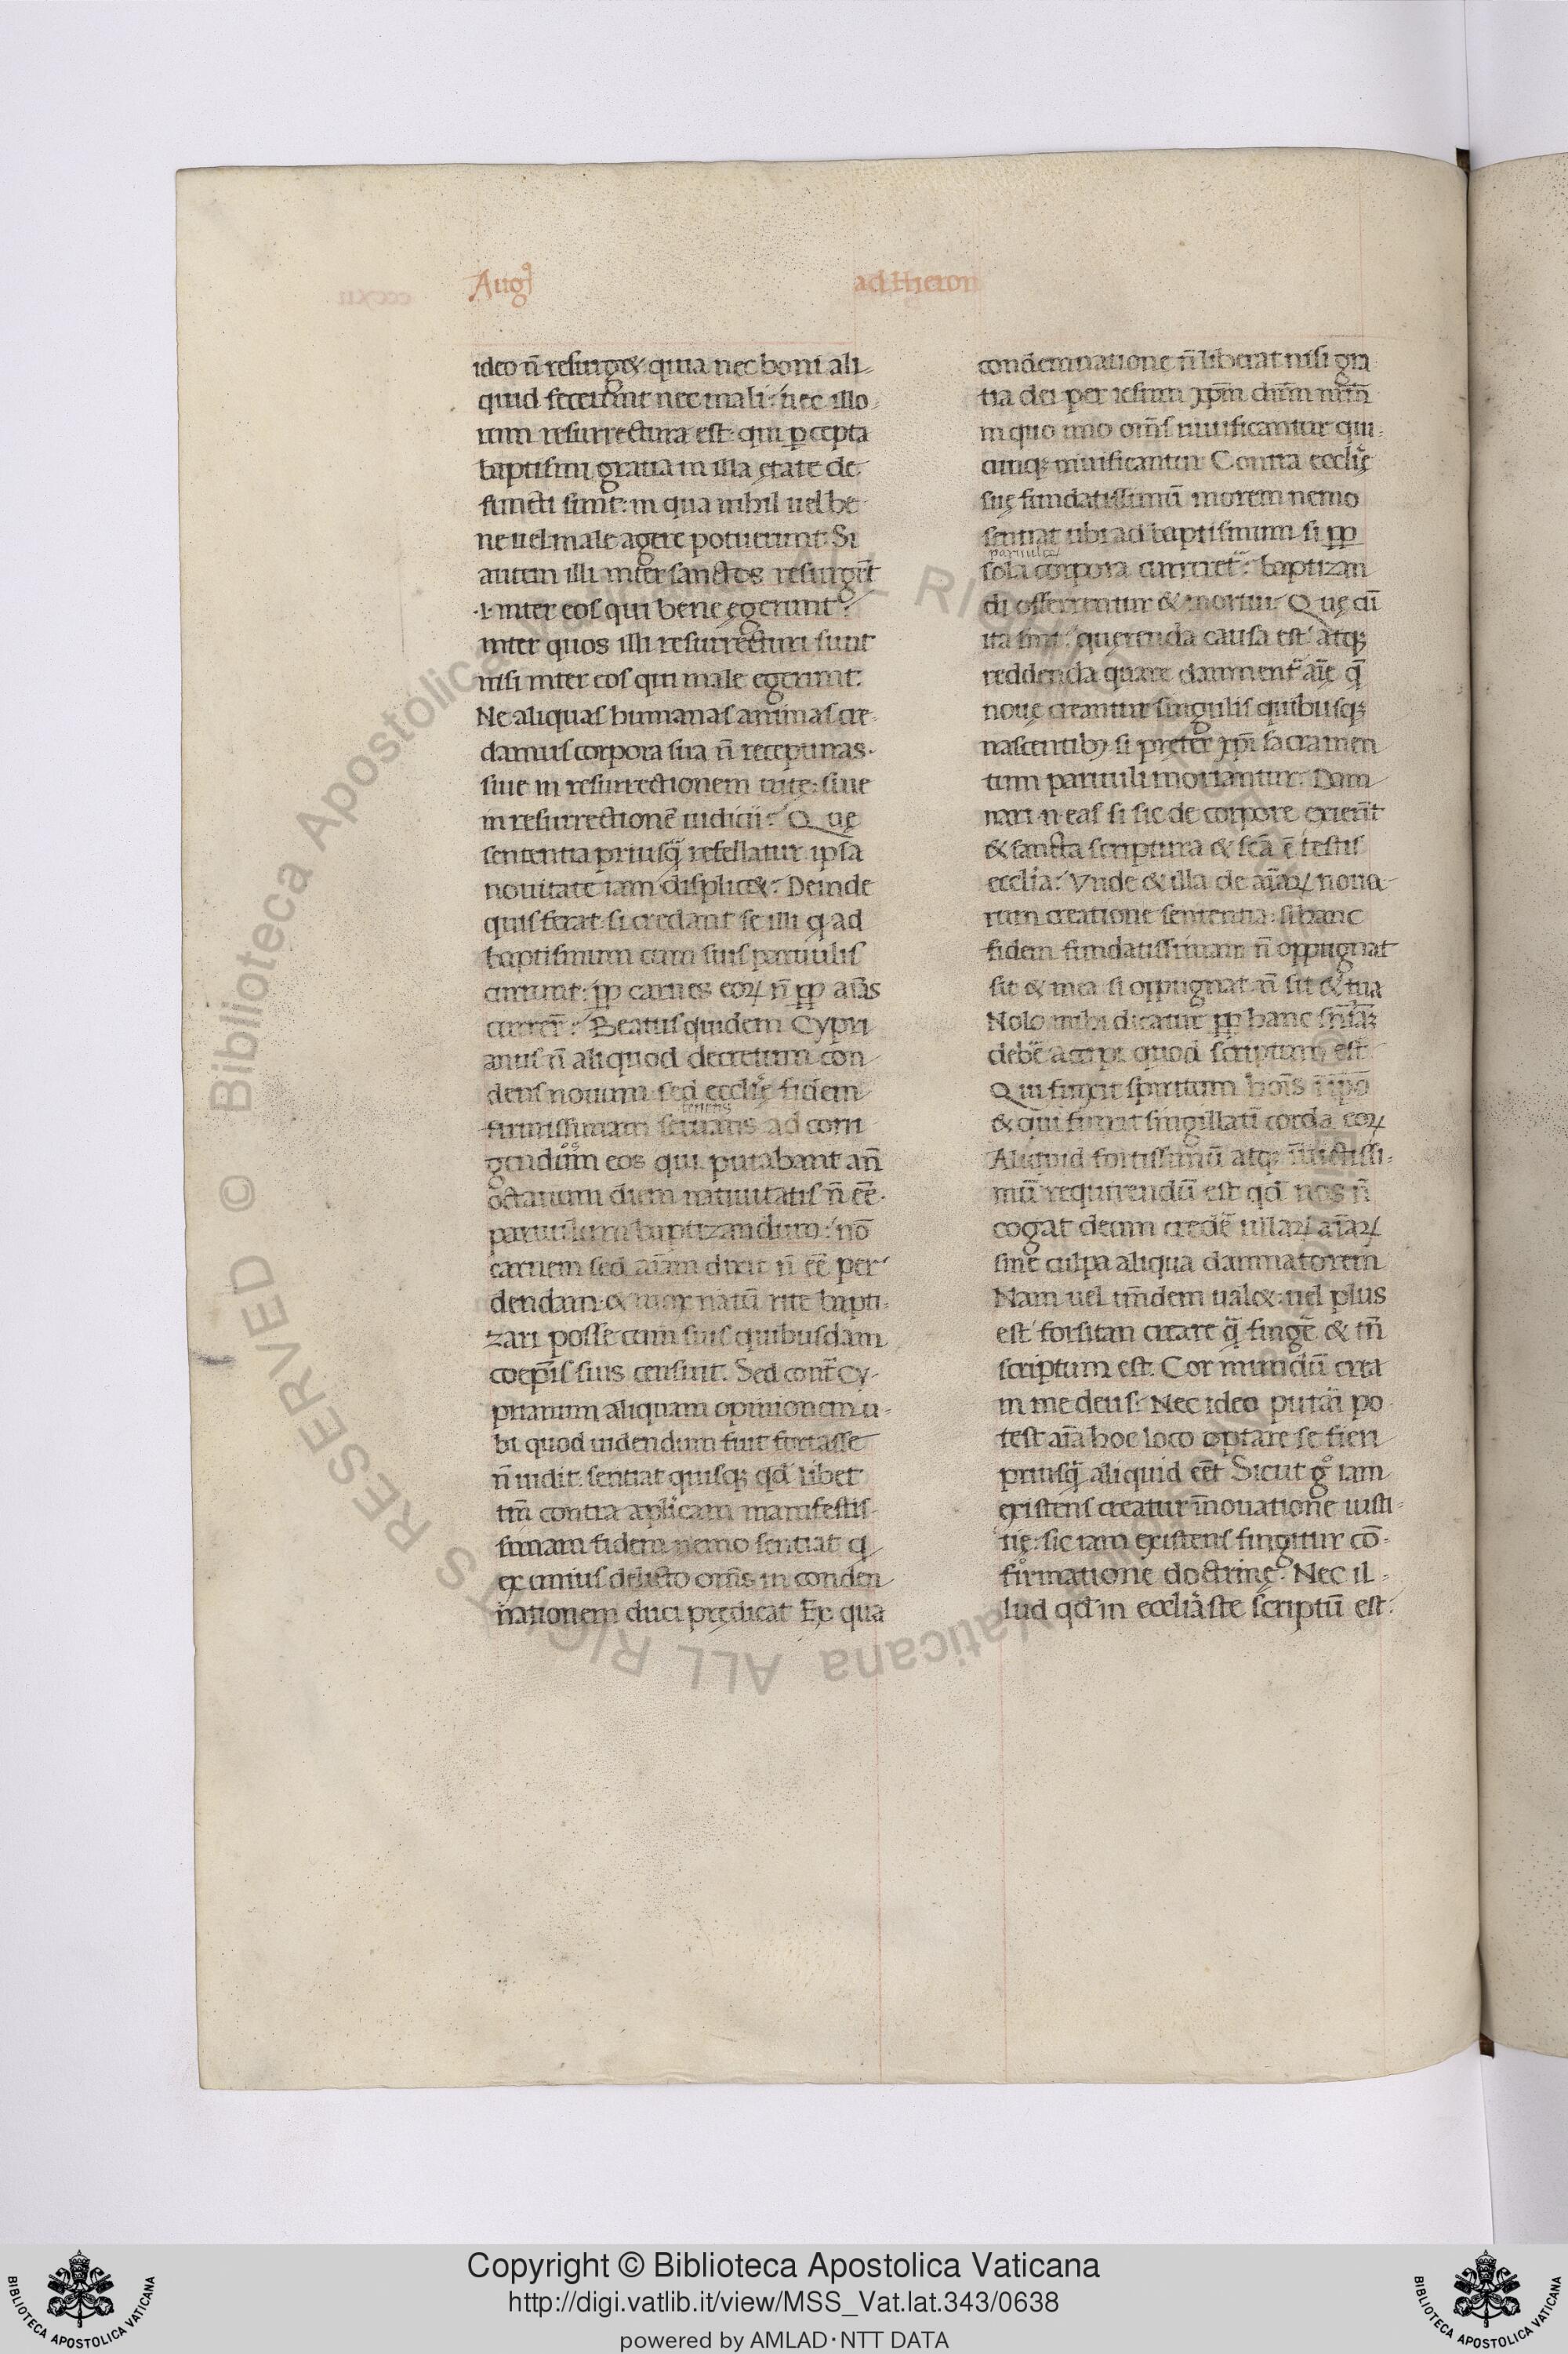 Augꝰ ad Hieron
ideo n̄ resurg&: quia nec boni ali-
quid fecerunt nec mali: nec illo-
rum resurrectura est: qui ꝑcepta
baptismi gratia in illa ętate de-
functi sunt: in qua nihil uel be-
ne uel male agere potuerunt. Si
autem illi inter sanctos resurgēt
.i. inter eos qui bene egerunt:
inter quos illi resurrecturi sunt
nisi inter eos qui male egerunt.
Ne aliquas humanas animas cre-
damus corpora sua n̄ recepturas.
siue in resurrectionem uite: siue
in resurrectionē iudicii: Quę
sententia priusq̄ refellatur ipsa
nouitate iam displic&: Deinde
quis ferat: si credant se illi q ad
baptismum cum suis paruulis
currunt: ꝓp carnes eoꝝ n̄ ꝓp aīas
currer̄: Beatus quidem Cypri
anus n̄ aliquod decretum con-
dens nouum: sed ecclię fidem
tenens
firmissimam seruans ad corri
gendūm eos qui putabant an̄
octauum diem natiuitatis n̄ eē.
paruulum baptizandum: nō
carnem sed aīam dixit n̄ eē per-
dendam: & mox natū rite bapti-
zari posse cum suis quibusdam
coep̄is suis censuit. Sed cont Cy-
prianum aliquam opinionem u-
bi quod uidendum fuit fortasse
n̄ uidit. sentiat quisq; qd̄ libet
tm̄ contra aplicam manifestis-
simam fidem nemo sentiat q
ex unius delicto om̄s in condem
nationem duci prędicat. Ex qua
condemnatione n̄ liberat nisi gra
tia dei per iesum xp̄m dn̄m nrm̄
in quo uno om̄s uiuificantur qui-
cunq; uiuificantur. Contra ecclię
suę fundatissimū morem nemo
sentiat ubi ad baptismum si ꝓp
paruuloꝝ
sola corpora curreret: baptizan
di offerrentur & mortui. Quę cū
ita sint: querenda causa est atq;
reddenda quare damnent aīę q̄
nouę creantur singulis quibusq;
nascentibꝫ si preter xp̄i sacramen
tum paruuli moriantur. Dam
nari n. eas si sic de corpore exierīt
& sancta scriptura & scā ē testis
ecclia: Vnde & illa de aīaꝝ noua-
rum creatione sententia: si hanc
fidem fundatissimam n̄ oppugnat
sit & mea si oppugnat n̄ sit & tua
Nolo mihi dicatur ꝓp hanc sn̄iā
debē accipi quod scriptum est
Qui finxit spiritum hoīs ī ipō
& qui finxit singillatī corda eoꝝ
Aliquid fortissimū atq; īuictissi-
mū requirendū est qd̄ nos n̄
cogat deum credē ullaꝝ aīaꝝ
sine culpa aliqua damnatorem
Nam uel tn̄dem ual&: uel plus
est forsitan creare q̄ fingē & tn̄
scriptum est. Cor mundū crea
in me deus: Nec ideo putāi po-
test aīa hoc loco optare se fieri
priusq̄ aliquid eēt Sicut g̊ iam
existens creatur īnouatione iusti-
tię: sic iam existens fingitur cō-
firmatione doctrinę. Nec il-
lud qd̄ in eccliaste scriptū est.
Copyright © Biblioteca Apostolica Vaticana
http://digi.vatlib.it/view/MSS_Vat.lat.343/0638
powered by AMLAD·NTT DATA